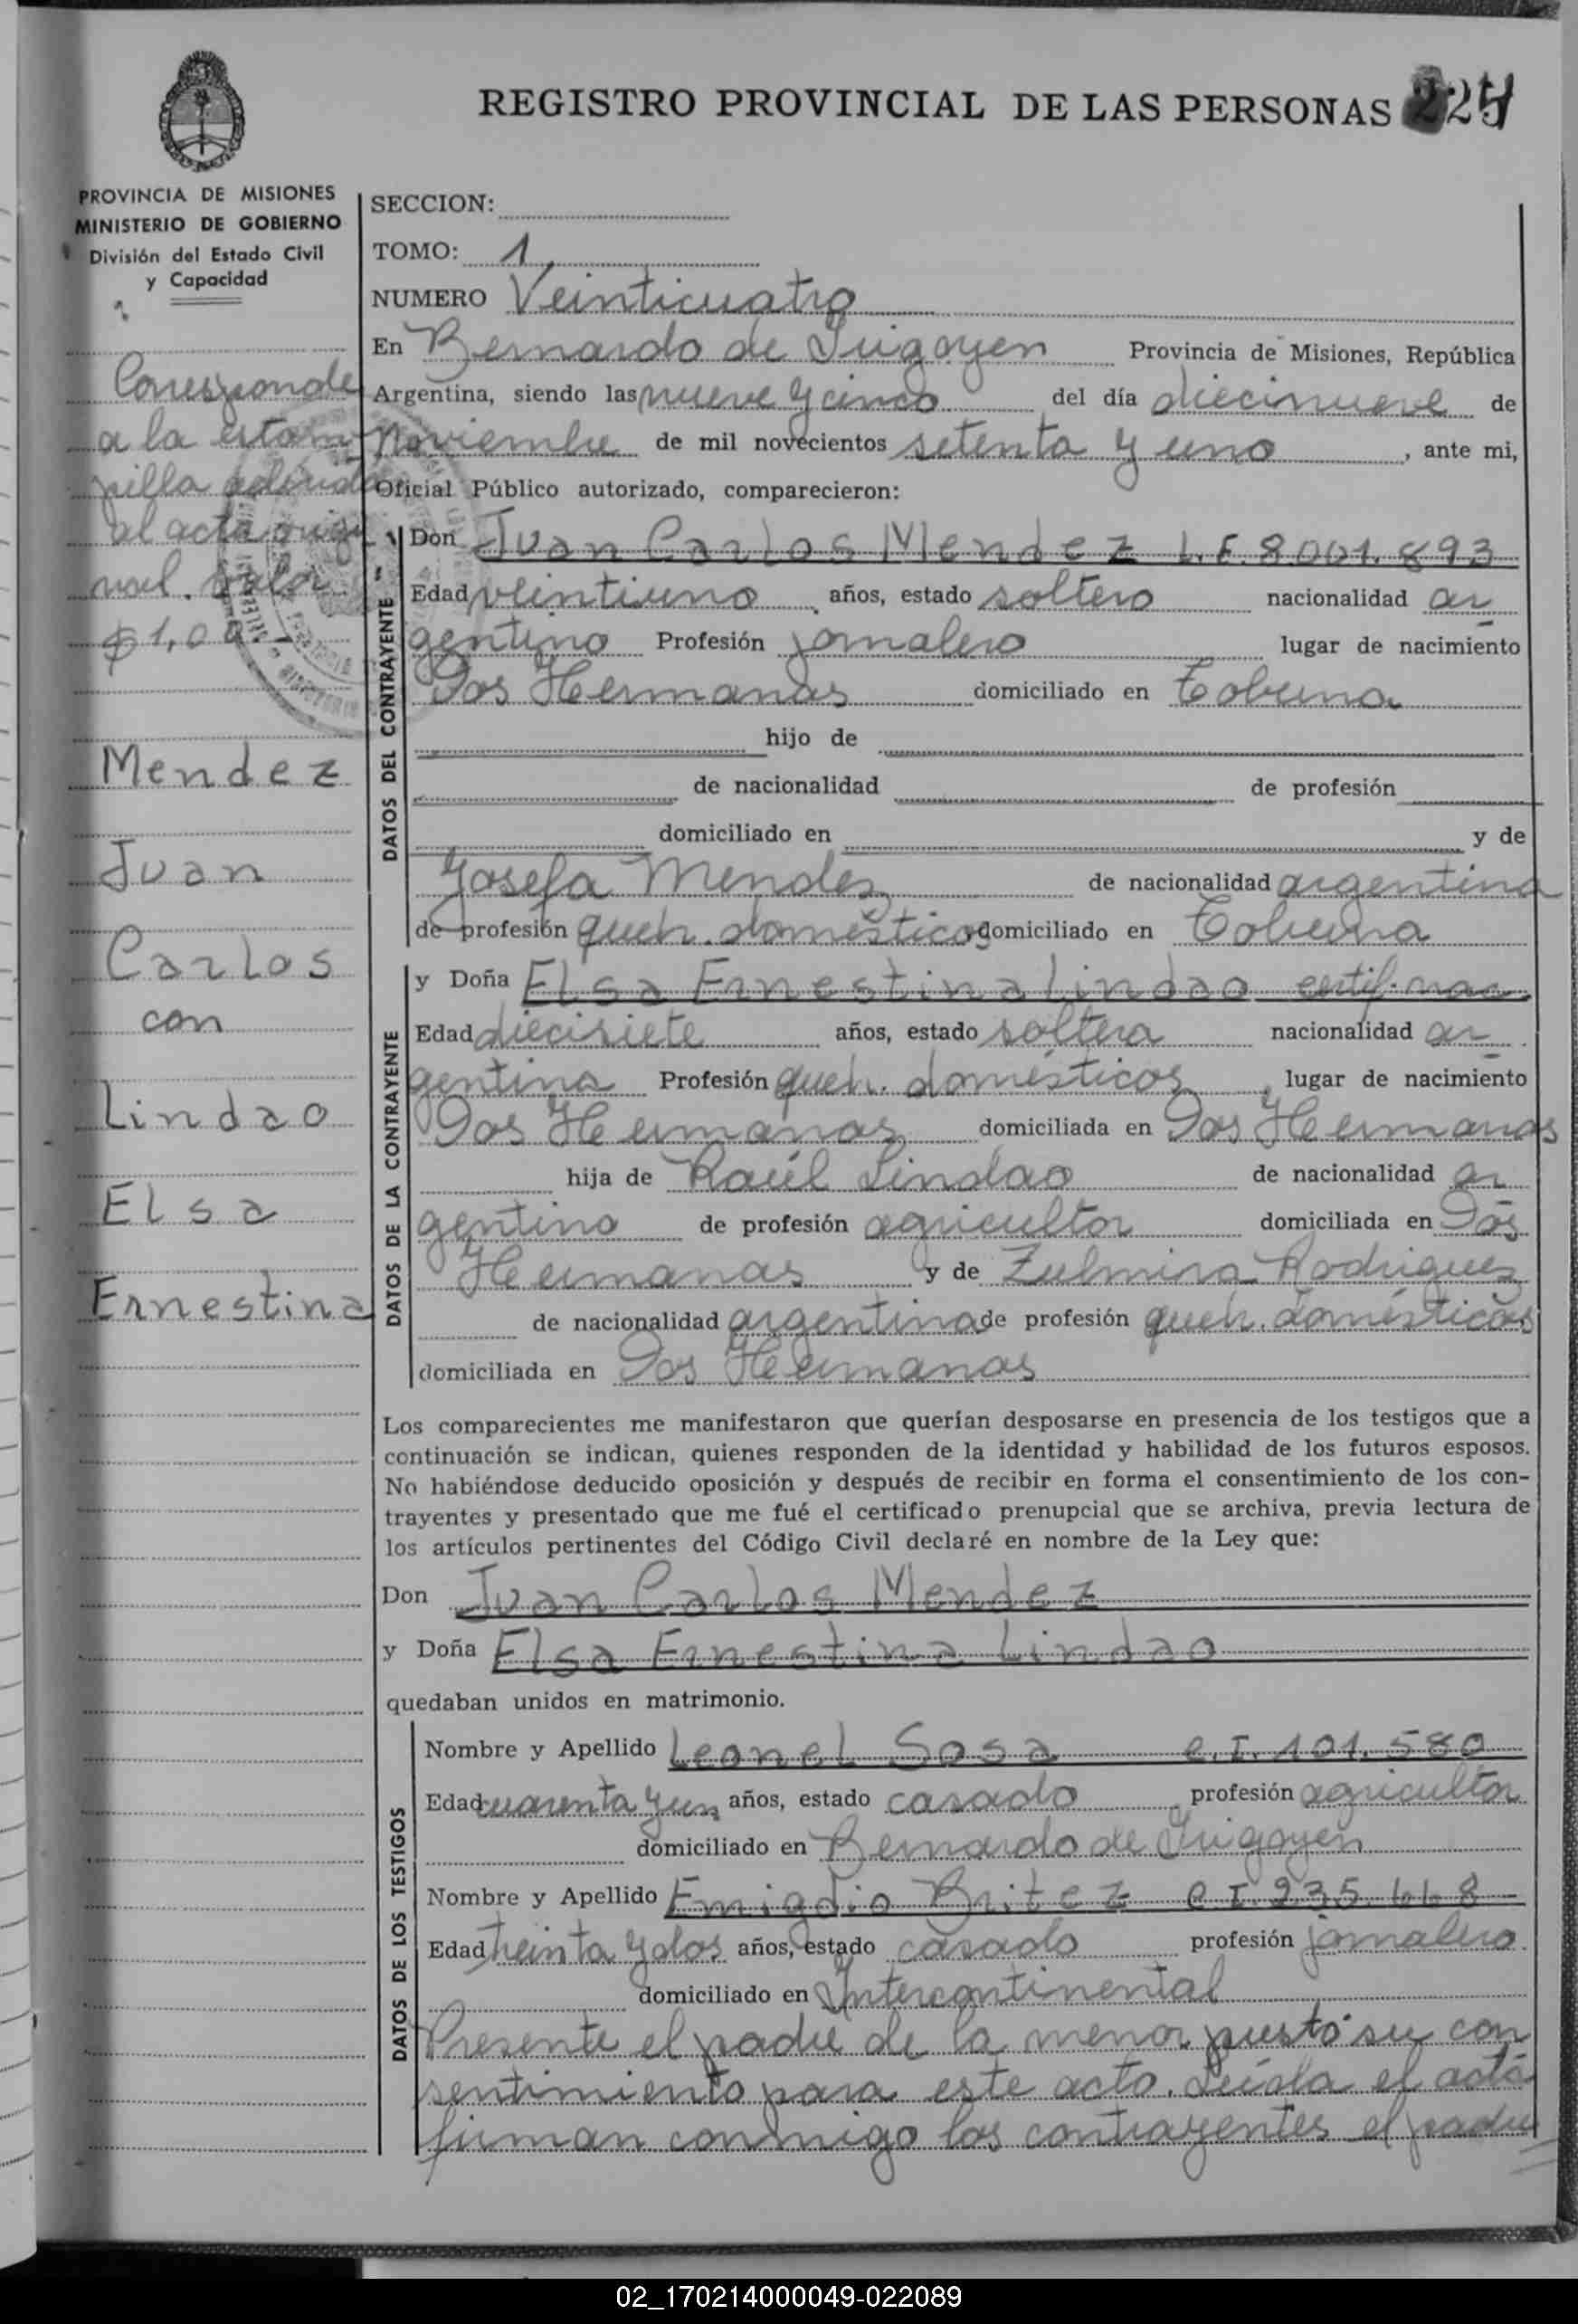 REGISTRO PROVINCIAL DE LAS PERSONAS
PROVINCIA DE MISIONES
MINISTERIO DE GOBIERNO
División del Estado Civil
y Capacidad
Corresponde
a la estam
pilla
al acta origi
nal. valor
$ 1,00
Mendez
Juan
Carlos
con
Lindao
Elsa
Ernestina
SECCION:
TOMO: 1
NUMERO Veinticuatro
En Bernardo de Irigoyen Provincia de Misiones, República
Argentina, siendo las nueve y cinco del día diecinueve de
noviembre de mil novecientos setenta y uno, ante mi,
Oficial Público autorizado, comparecieron:
DATOS DEL CONTRAYENTE
Don Juan Carlos Mendez L.E. 8.001.893
Edad veintiuno años, estado soltero nacionalidad ar
gentino Profesión jornalero lugar de nacimiento
Dos Hermanas domiciliado en Tobuna
hijo de
de nacionalidad de profesión
domiciliado en y de
Josefa Mendez de nacionalidad argentina
de profesión queh. domésticos domiciliado en Tobuna
DATOS DE LA CONTRAYENTE
y Doña Elsa Ernestina Lindao certif. nac.
Edad diecisiete años, estado soltera nacionalidad ar
gentina Profesión queh. domésticos, lugar de nacimiento
Dos Hermanas domiciliada en Dos Hermanas
hija de Raúl Lindao de nacionalidad ar
gentino de profesión agricultor domiciliada en Dos
Hermanas y de Zulmira Rodriguez
de nacionalidad argentina de profesión queh. domésticos
domiciliada en Dos Hermanas
Los comparecientes me manifestaron que querían desposarse en presencia de los testigos que a
continuación se indican, quienes responden de la identidad y habilidad de los futuros esposos.
No habiéndose deducido oposición y después de recibir en forma el consentimiento de los con-
trayentes y presentado que me fué el certificado prenupcial que se archiva, previa lectura de
los artículos pertinentes del Código Civil declaré en nombre de la Ley que:
Don Juan Carlos Mendez
y Doña Elsa Ernestina Lindao
quedaban unidos en matrimonio.
DATOS DE LOS TESTIGOS
Nombre y Apellido Leonel Sosa C.I. 101.580
Edad cuarenta y un años, estado casado profesión agricultor
domiciliado en Bernardo de Irigoyen
Nombre y Apellido Emigdio Britez C.I. 235.668
Edad treinta y dos años, estado casado profesión jornalero
domiciliado en Intercontinental
Presente el padre de la menor prestó su con
sentimiento para este acto. Leída el acta
firman conmigo los contrayentes el padre
02_170214000049-022089